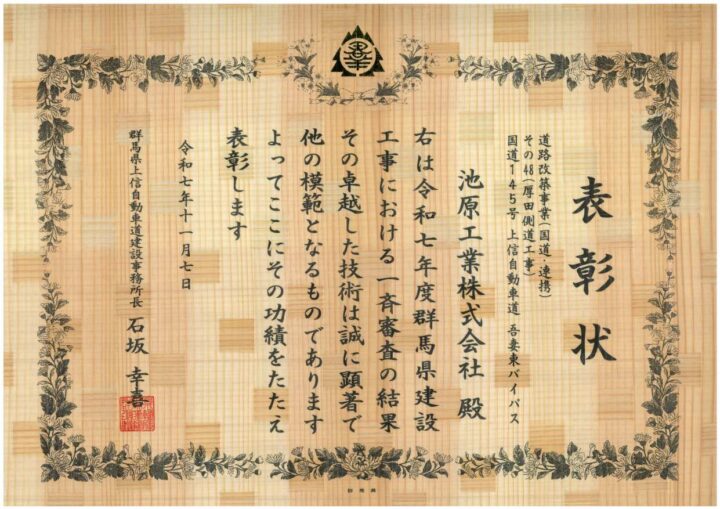 表彰状
道路改築事業(国道・連携)
その48(厚田側道工事)
国道145号 上信自動車道 吾妻東バイパス
池原工業株式会社 殿
右は令和七年度群馬県建設
工事における一斉審査の結果
その卓越した技術は誠に顕著で
他の模範となるものであります
よってここにその功績をたたえ
表彰します
令和七年十一月七日
群馬県上信自動車道建設事務所長 石坂 幸喜